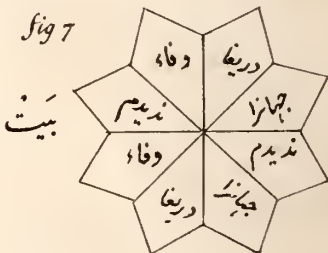 fig 7
بَيَتْ
وفاء
دريغا
جهانرا
نديدم
جهانرا
دريغا
وفاء
نديدم